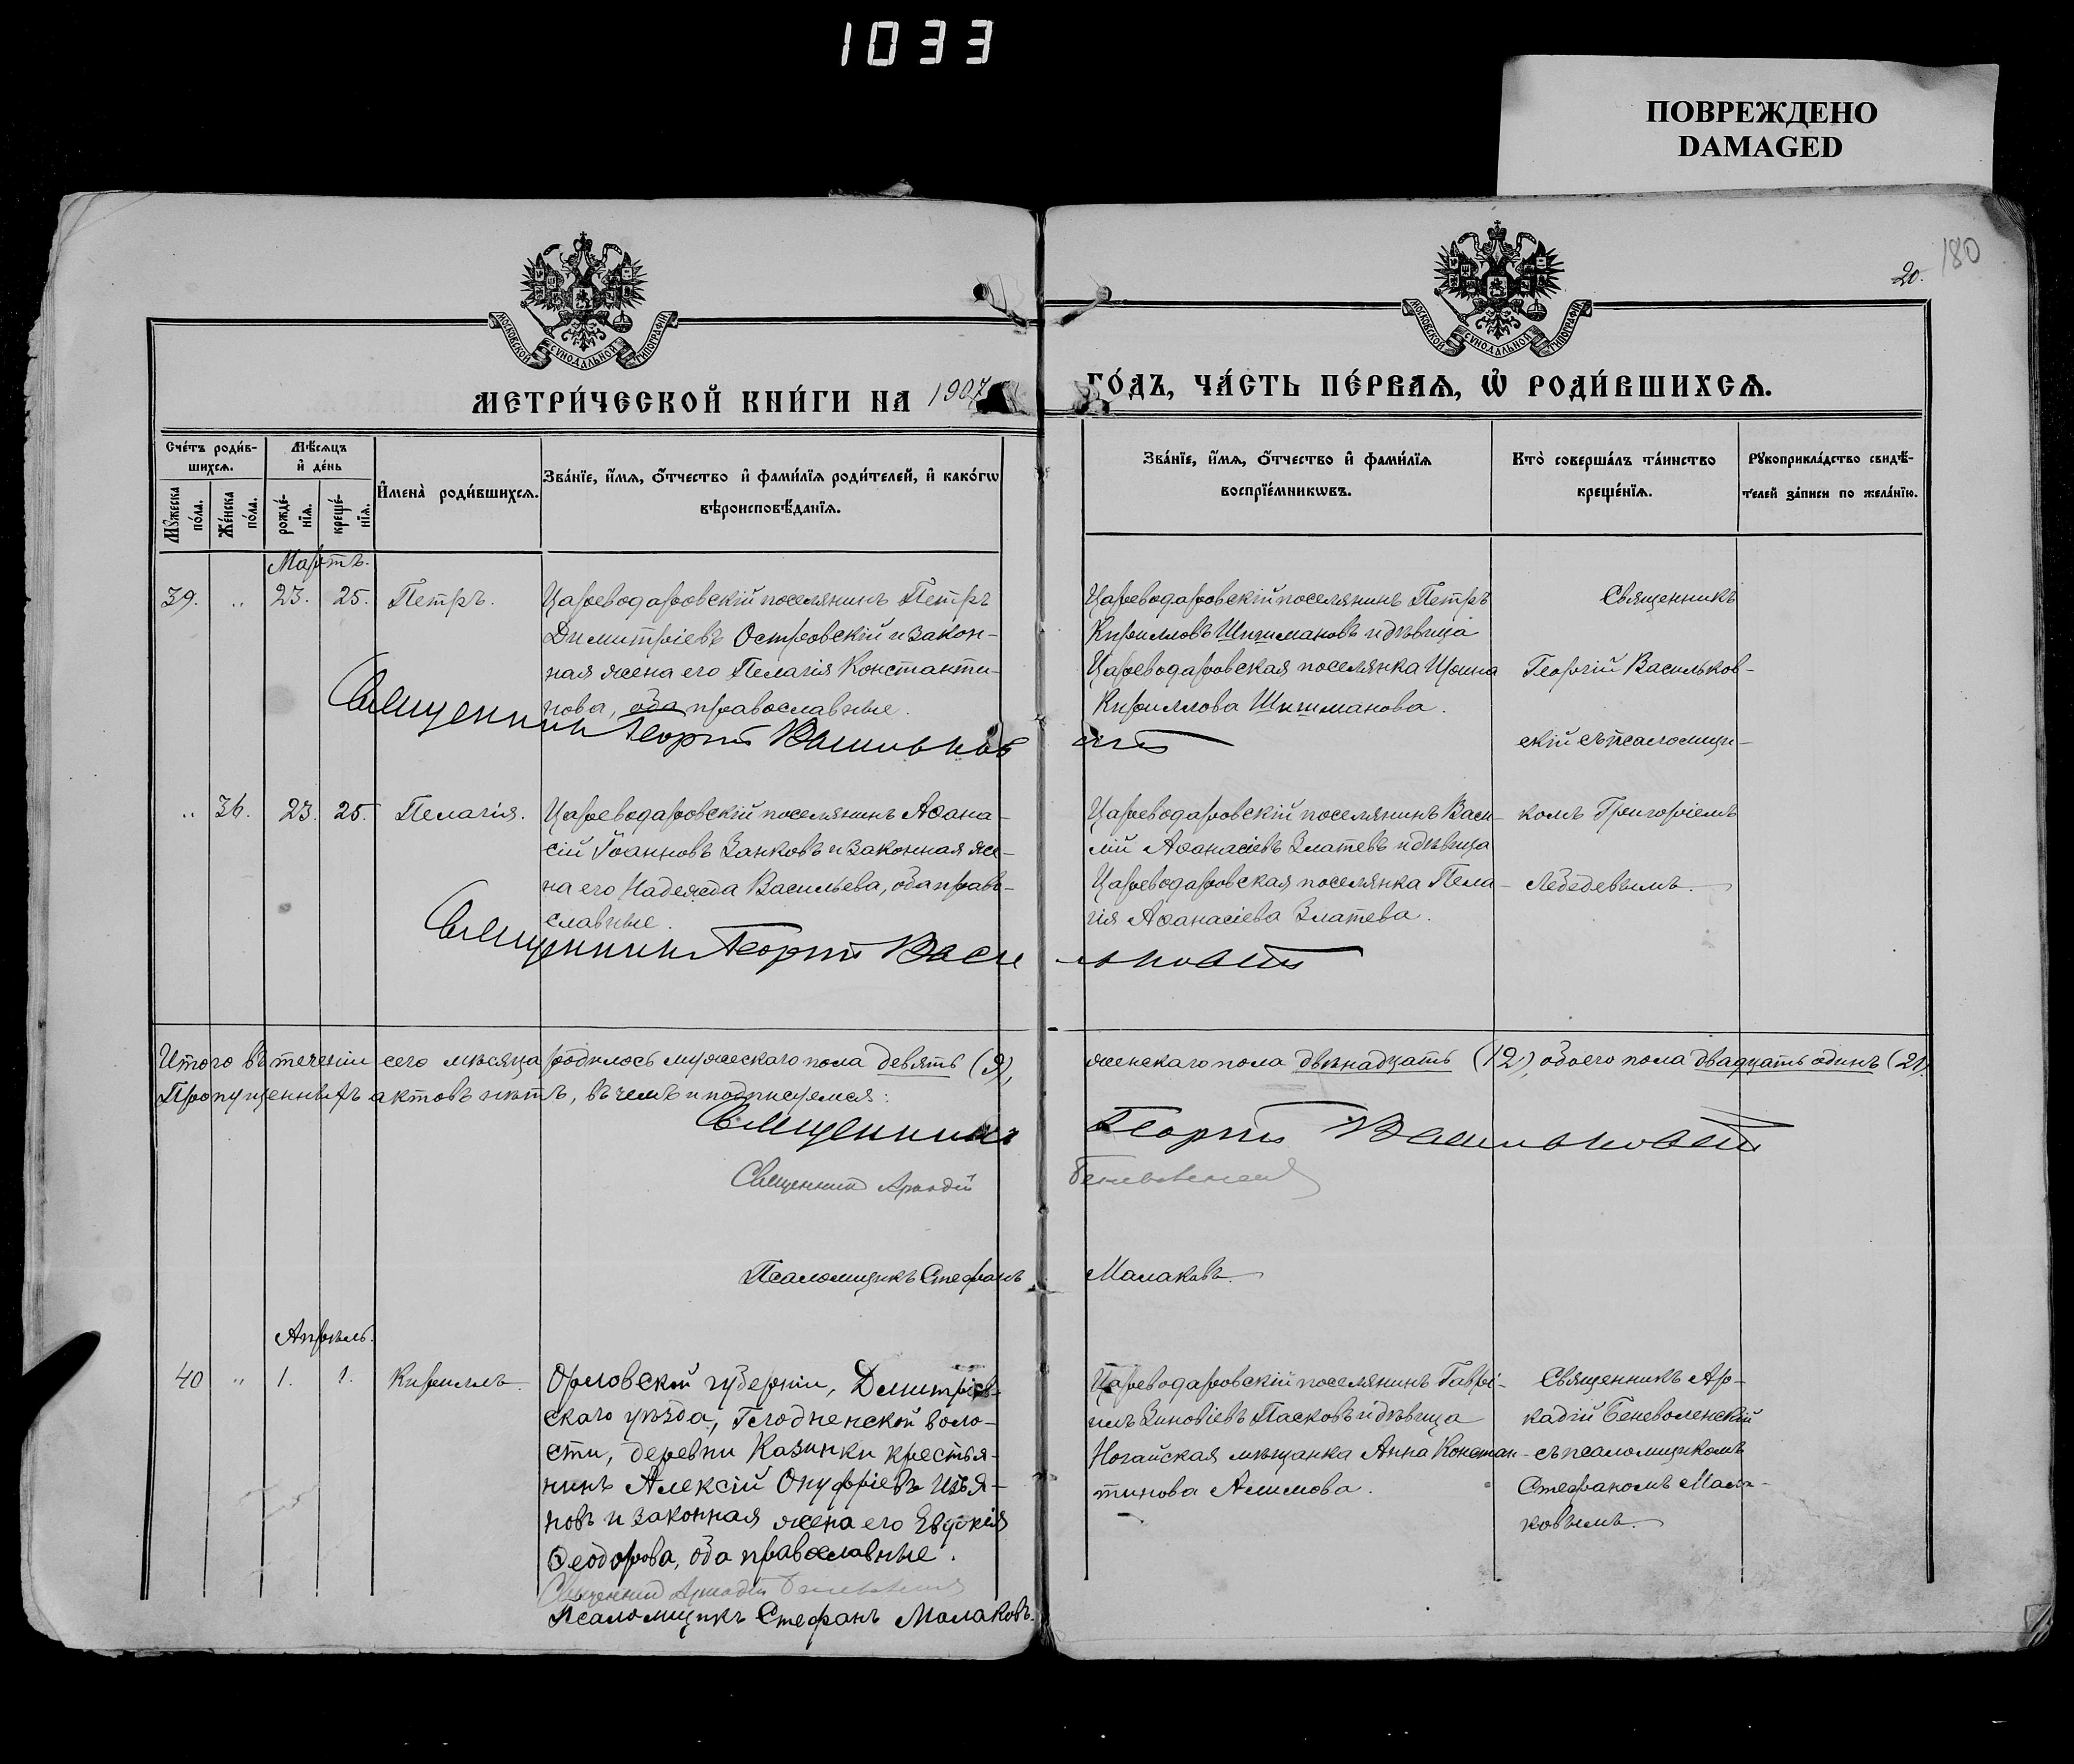 1033
ПОВРЕЖДЕНО
DAMAGED
180
20.
МОСКОВСКОЙ СѴНОДАЛЬНОЙ ТИПОГРАФІИ
МОСКОВСКОЙ СѴНОДАЛЬНОЙ ТИПОГРАФІИ
МЕТРИ́ЧЕСКОЙ КНИ́ГИ НА 1907
ГО́ДЪ, ЧА́СТЬ ПЕ́РВАѦ, Ѡ҆ РОДИ́ВШИХСѦ.
Сче́тъ роди́в-
шихсѧ.
Мꙋ́жеска по́ла.
Же́нска по́ла.
Мѣ́сѧцъ
и҆ де́нь
рожде́-
нїѧ.
креще́-
нїѧ.
И҆мена̀ роди́вшихсѧ.
Зва́нїе, и҆́мѧ, ѻ҆́тчество и҆ фами́лїѧ роди́телей, и҆ како́гѡ
вѣроисповѣ́данїѧ.
Зва́нїе, и҆́мѧ, ѻ҆́тчество и҆ фами́лїѧ
воспрїе́мникѡвъ.
Кто̀ соверша́лъ та́инство
креще́нїѧ.
Рꙋкоприкла́дство свидѣ́-
телей за́писи по жела́нїю.
Мартъ.
39. „ 23. 25. Петръ.
Цареводаровскій поселянинъ Петръ
Димитріевъ Островскій и закон-
ная жена его Пелагія Константи-
нова, оба православные.
Священникъ Георгій Васильковскій
Цареводаровскій поселянинъ Петръ
Кирилловъ Шишмановъ и дѣвица
Цареводаровская поселянка Ирина
Кириллова Шишманова.
Священникъ
Георгій Васильков-
скій съ псаломщи-
комъ Григоріемъ
Лебедевымъ.
„ 36. 23. 25. Пелагія.
Цареводаровскій поселянинъ Аѳана-
сій Іоанновъ Занковъ и законная же-
на его Надежда Васильева, оба право-
славные.
Священникъ Георгій Васильковскій
Цареводаровскій поселянинъ Васи-
лій Аѳанасіевъ Златевъ и дѣвица
Цареводаровская поселянка Пела-
гія Аѳанасіева Златева.
Итого въ теченіи сего мѣсяца родилось мужескаго пола девять (9), женскаго пола двѣнадцать (12), обоего пола двадцать одинъ (21).
Пропущенныхъ актовъ нѣтъ, въ чемъ и подписуемся:
Священникъ Георгій Васильковскій
Священникъ Аркадій Беневоленскій
Псаломщикъ Стефанъ Малаковъ.
Апрѣль.
40 „ 1. 1. Кириллъ.
Орловской губерніи, Дмитріев-
скаго уѣзда, Глодненской воло-
сти, деревни Казинки крестья-
нинъ Алексій Онуфріевъ Изъя-
новъ и законная жена его Евдокія
Ѳеодорова, оба православные.
Священникъ Аркадій Беневоленскій
Псаломщикъ Стефанъ Малаковъ.
Цареводаровскій поселянинъ Гаврі-
илъ Зиновіевъ Пасковъ и дѣвица
Ногайская мѣщанка Анна Констан-
тинова Алимова.
Священникъ Ар-
кадій Беневоленскій
съ псаломщикомъ
Стефаномъ Мала-
ковымъ.